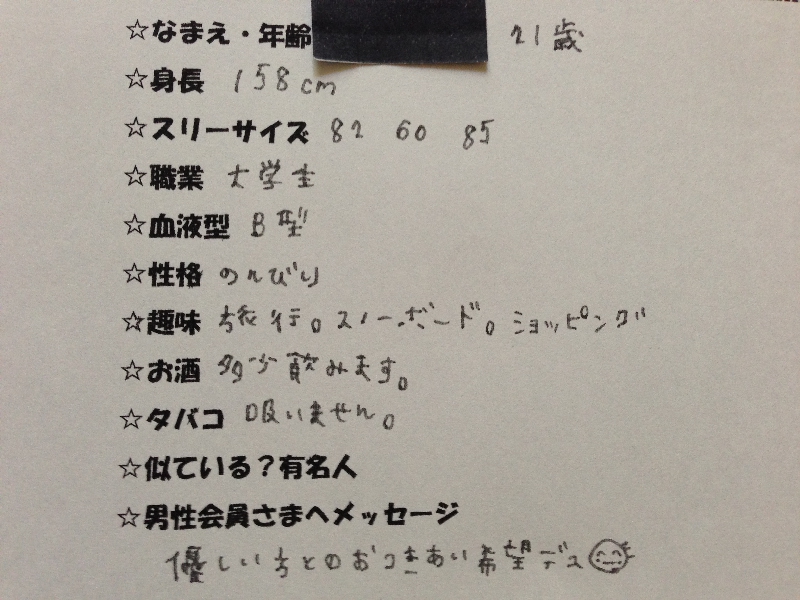 ☆なまえ・年齢 21歳
☆身長 158cm
☆スリーサイズ 82 60 85
☆職業 大学生
☆血液型 B型
☆性格 のんびり
☆趣味 旅行。スノーボード。ショッピング
☆お酒 多少飲みます。
☆タバコ 吸いません。
☆似ている?有名人
☆男性会員さまへメッセージ
優しい方とのおつきあい希望デス